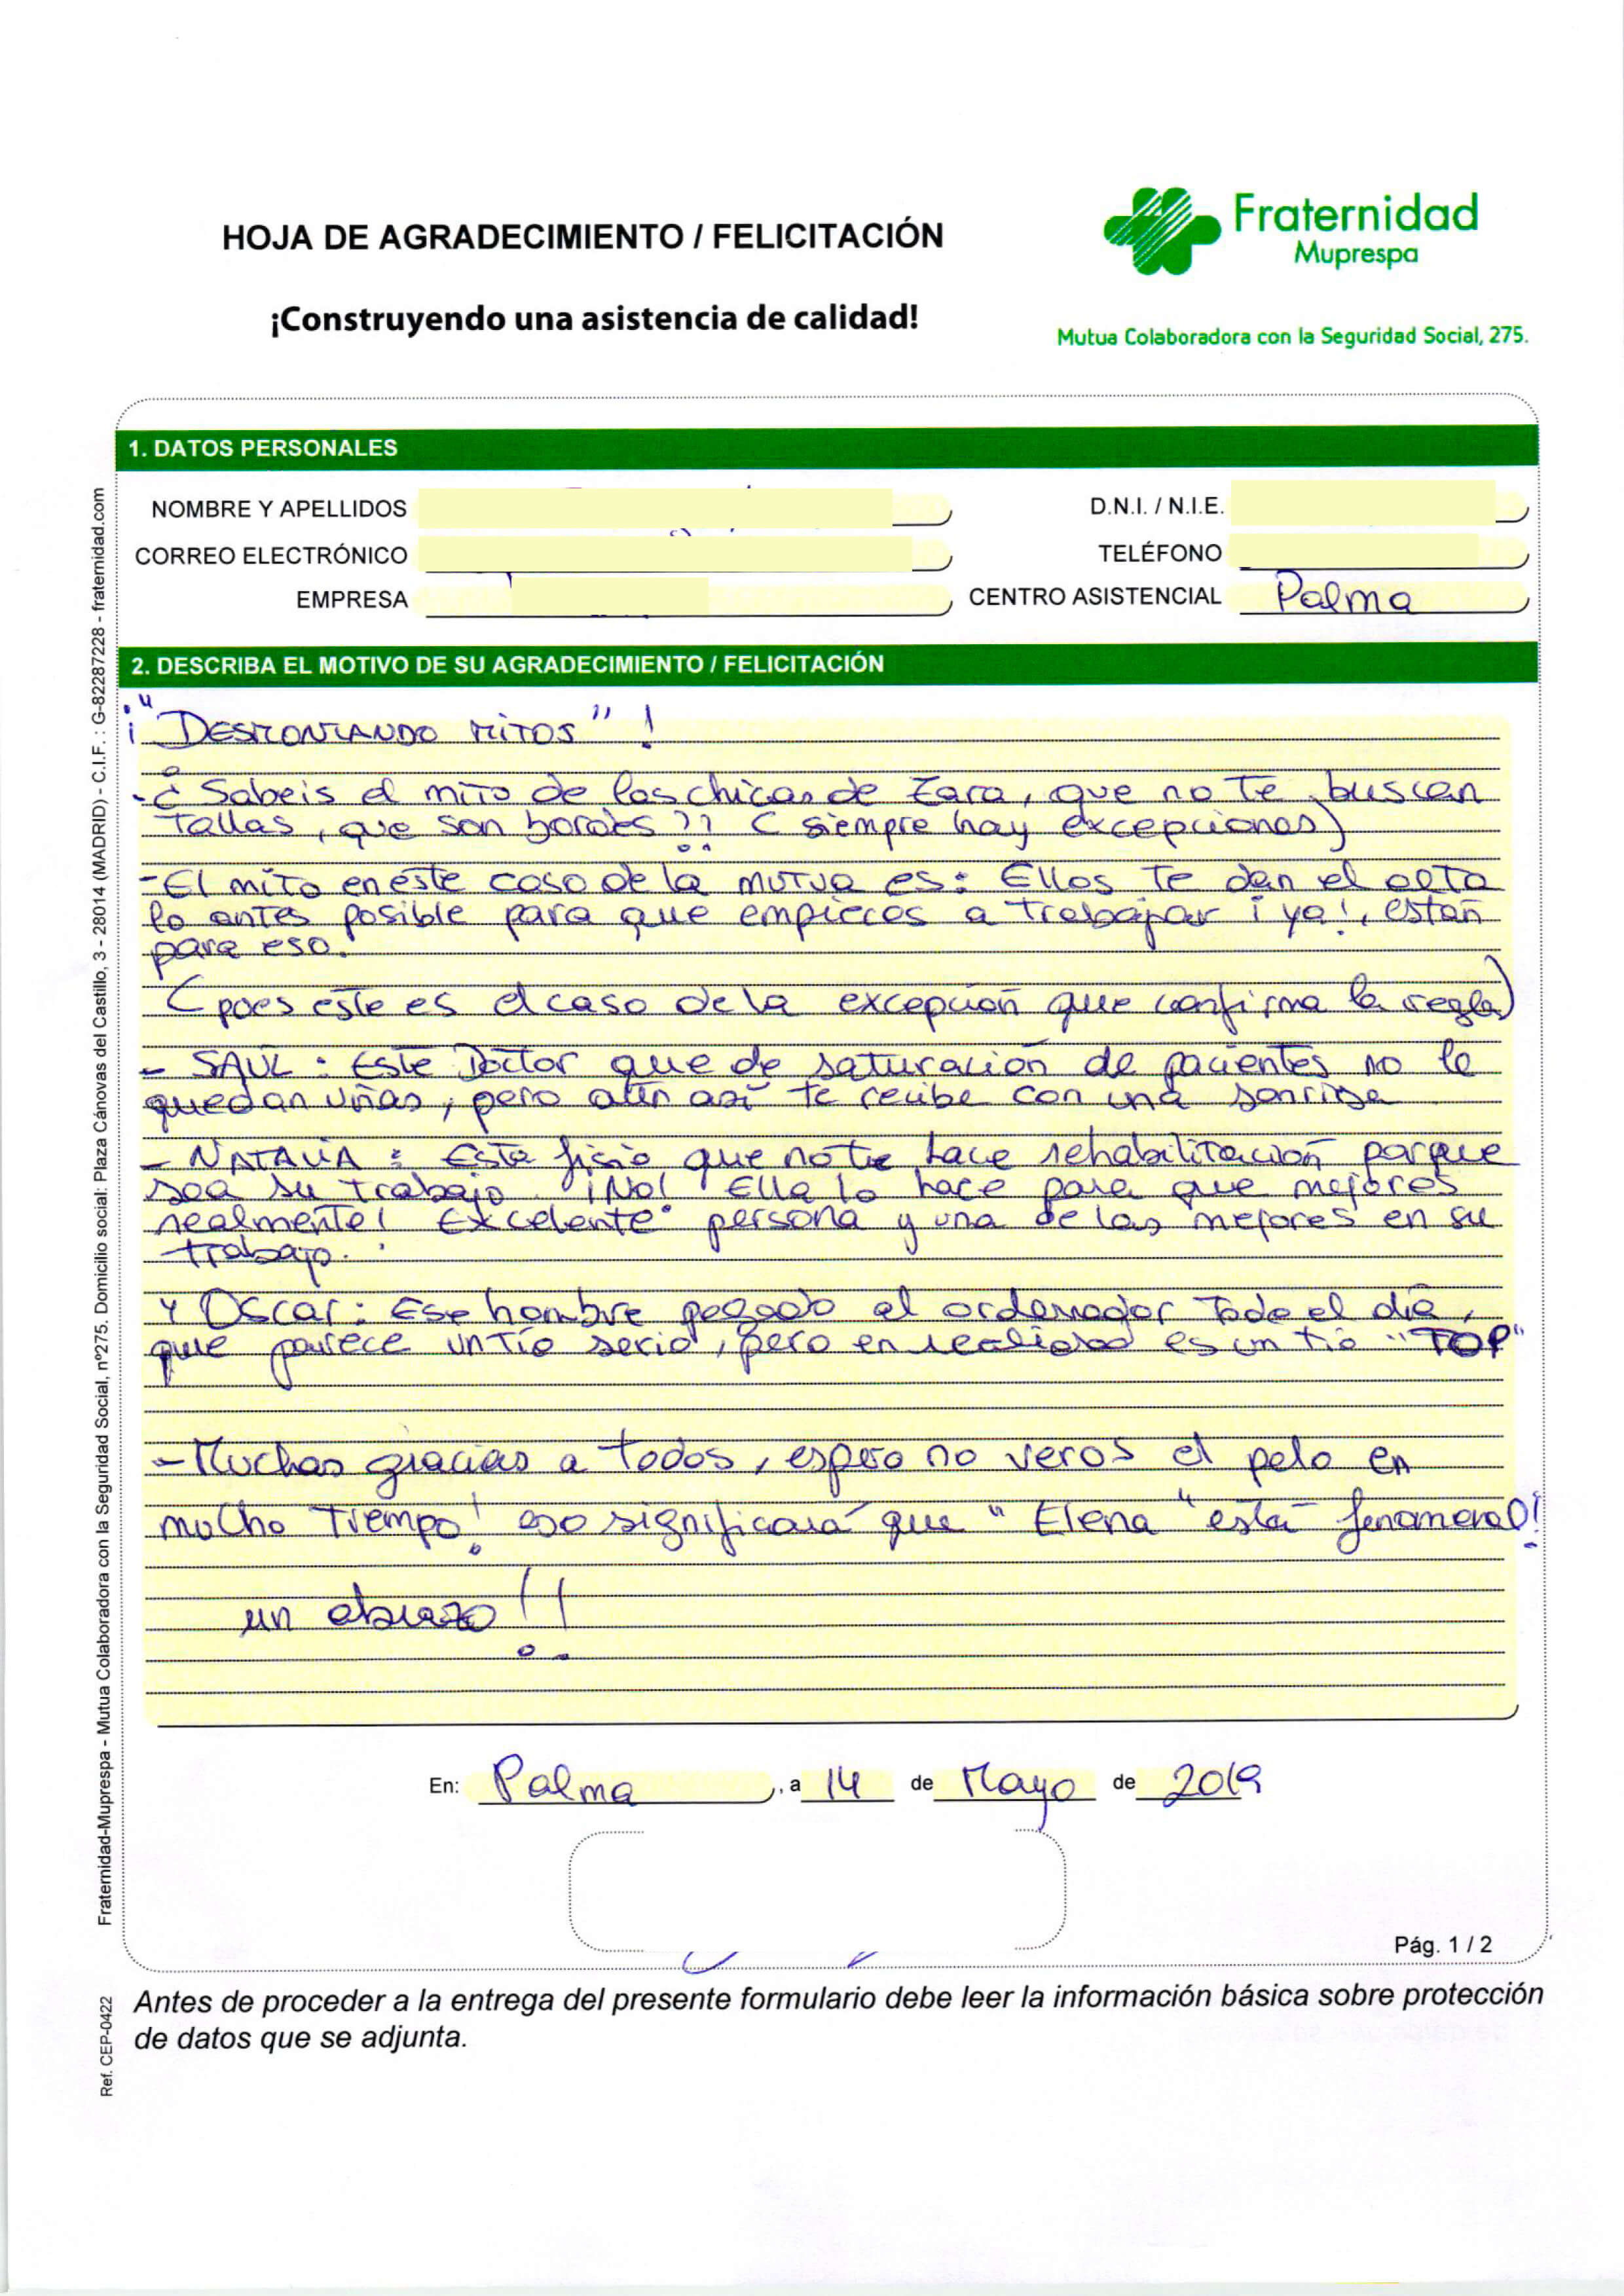 HOJA DE AGRADECIMIENTO / FELICITACIÓN
¡Construyendo una asistencia de calidad!
Fraternidad
Muprespa
Mutua Colaboradora con la Seguridad Social, 275.
1. DATOS PERSONALES
NOMBRE Y APELLIDOS
D.N.I. / N.I.E.
CORREO ELECTRÓNICO
TELÉFONO
EMPRESA
CENTRO ASISTENCIAL Palma
2. DESCRIBA EL MOTIVO DE SU AGRADECIMIENTO / FELICITACIÓN
¡"DESMONTANDO MITOS"!
-¿Sabeis el mito de las chicas de Zara, que no te buscan
Tallas, que son bordes?? (siempre hay excepciones)
-El mito en éste caso de la mutua es: Ellos te dan el alta
lo antes posible para que empieces a trabajar ¡ya!, están
para eso.
(pues este es el caso de la excepción que confirma la regla)
- SAUL: Este Doctor que de saturación de pacientes no le
quedan uñas, pero aún así te recibe con una sonrisa
- NATALIA: Esta fisio que no te hace rehabilitación porque
sea su trabajo ¡No! Ella lo hace para que mejores
realmente! Excelente persona y una de las mejores en su
trabajo.
Y Oscar: Ese hombre pegado al ordenador todo el día,
que parece un tío serio, pero en realidad es un tío "TOP"
- Muchas gracias a todos, espero no veros el pelo en
mucho tiempo! eso significará que "Elena" está fenomenal!
un abrazo!!
En: Palma, a 14 de Mayo de 2019
Pág. 1 / 2
Antes de proceder a la entrega del presente formulario debe leer la información básica sobre protección
de datos que se adjunta.
Fraternidad-Muprespa - Mutua Colaboradora con la Seguridad Social, nº275. Domicilio social: Plaza Cánovas del Castillo, 3 - 28014 (MADRID) - C.I.F. : G-82287228 - fraternidad.com
Ref. CEP-0422